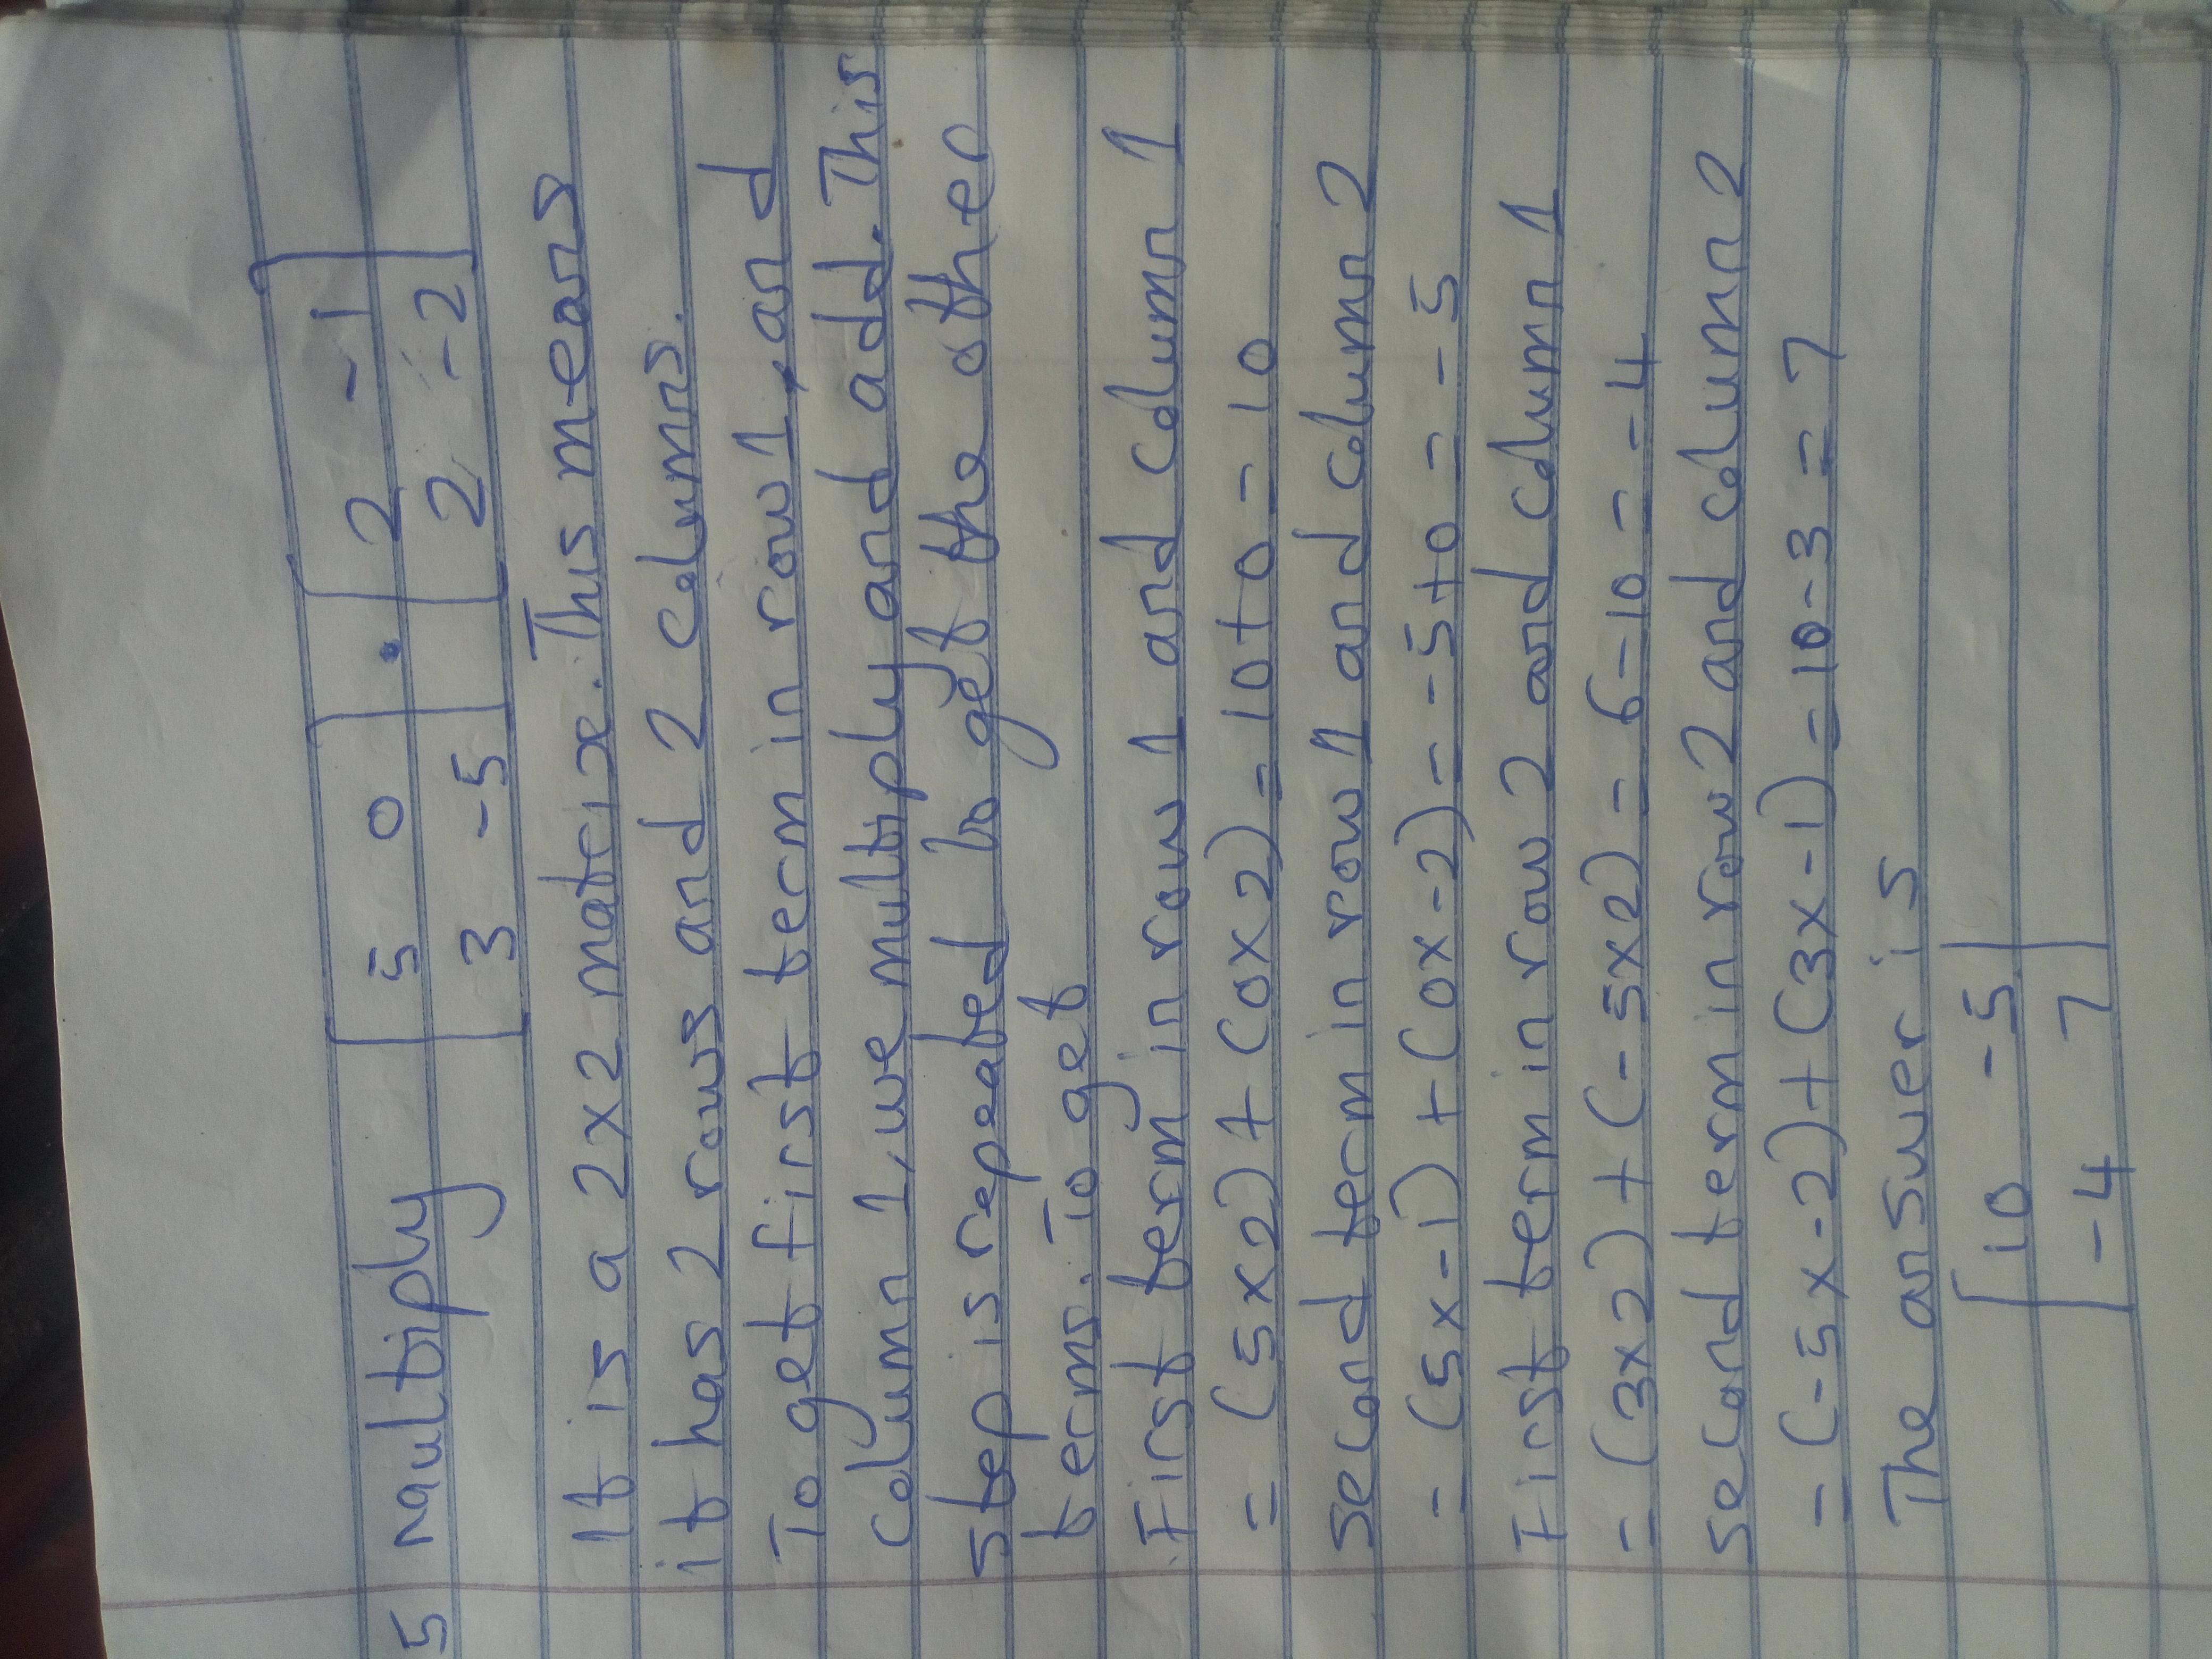 5 Multiply [5 0 • [2 -1
3 -5] 2 -2]
It is a 2x2 matrix. This means
it has 2 rows and 2 columns.
To get first term in row 1, and
column 1, we multiply and add. This
step is repeated to get the other
terms. To get
First term in row 1 and column 1
= (5x2) + (0x2) = 10+0 = 10
Second term in row 1 and column 2
= (5x-1) + (0x-2) = -5+0 = -5
First term in row 2 and column 1
= (3x2) + (-5x2) = 6-10 = -4
Second term in row 2 and column 2
= (-5x-2) + (3x-1) = 10-3 = 7
The answer is
[10 -5
-4 7]